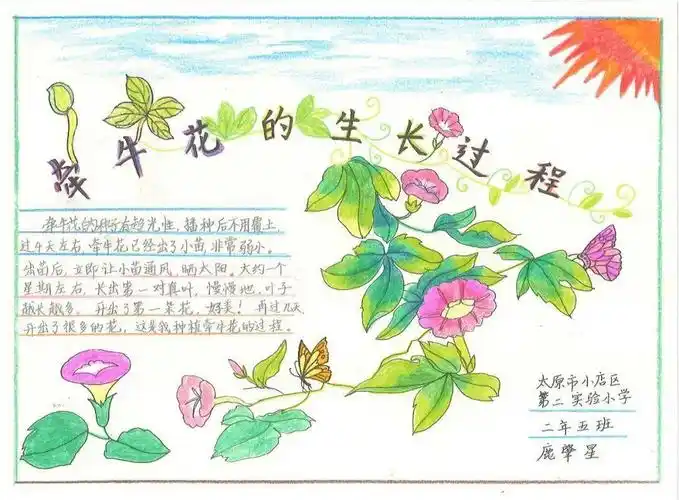 牵牛花的生长过程
牵牛花的种子有趋光性，播种后不用覆土，
过4天左右，牵牛花已经出了小苗，非常弱小。
出苗后，立即让小苗通风，晒太阳。大约一个
星期左右，长出第一对真叶，慢慢地，叶子
越长越多。开出了第一朵花，好美！再过几天，
开出了很多的花，这是我种植牵牛花的过程。
太原市小店区
第二实验小学
二年五班
鹿肇星